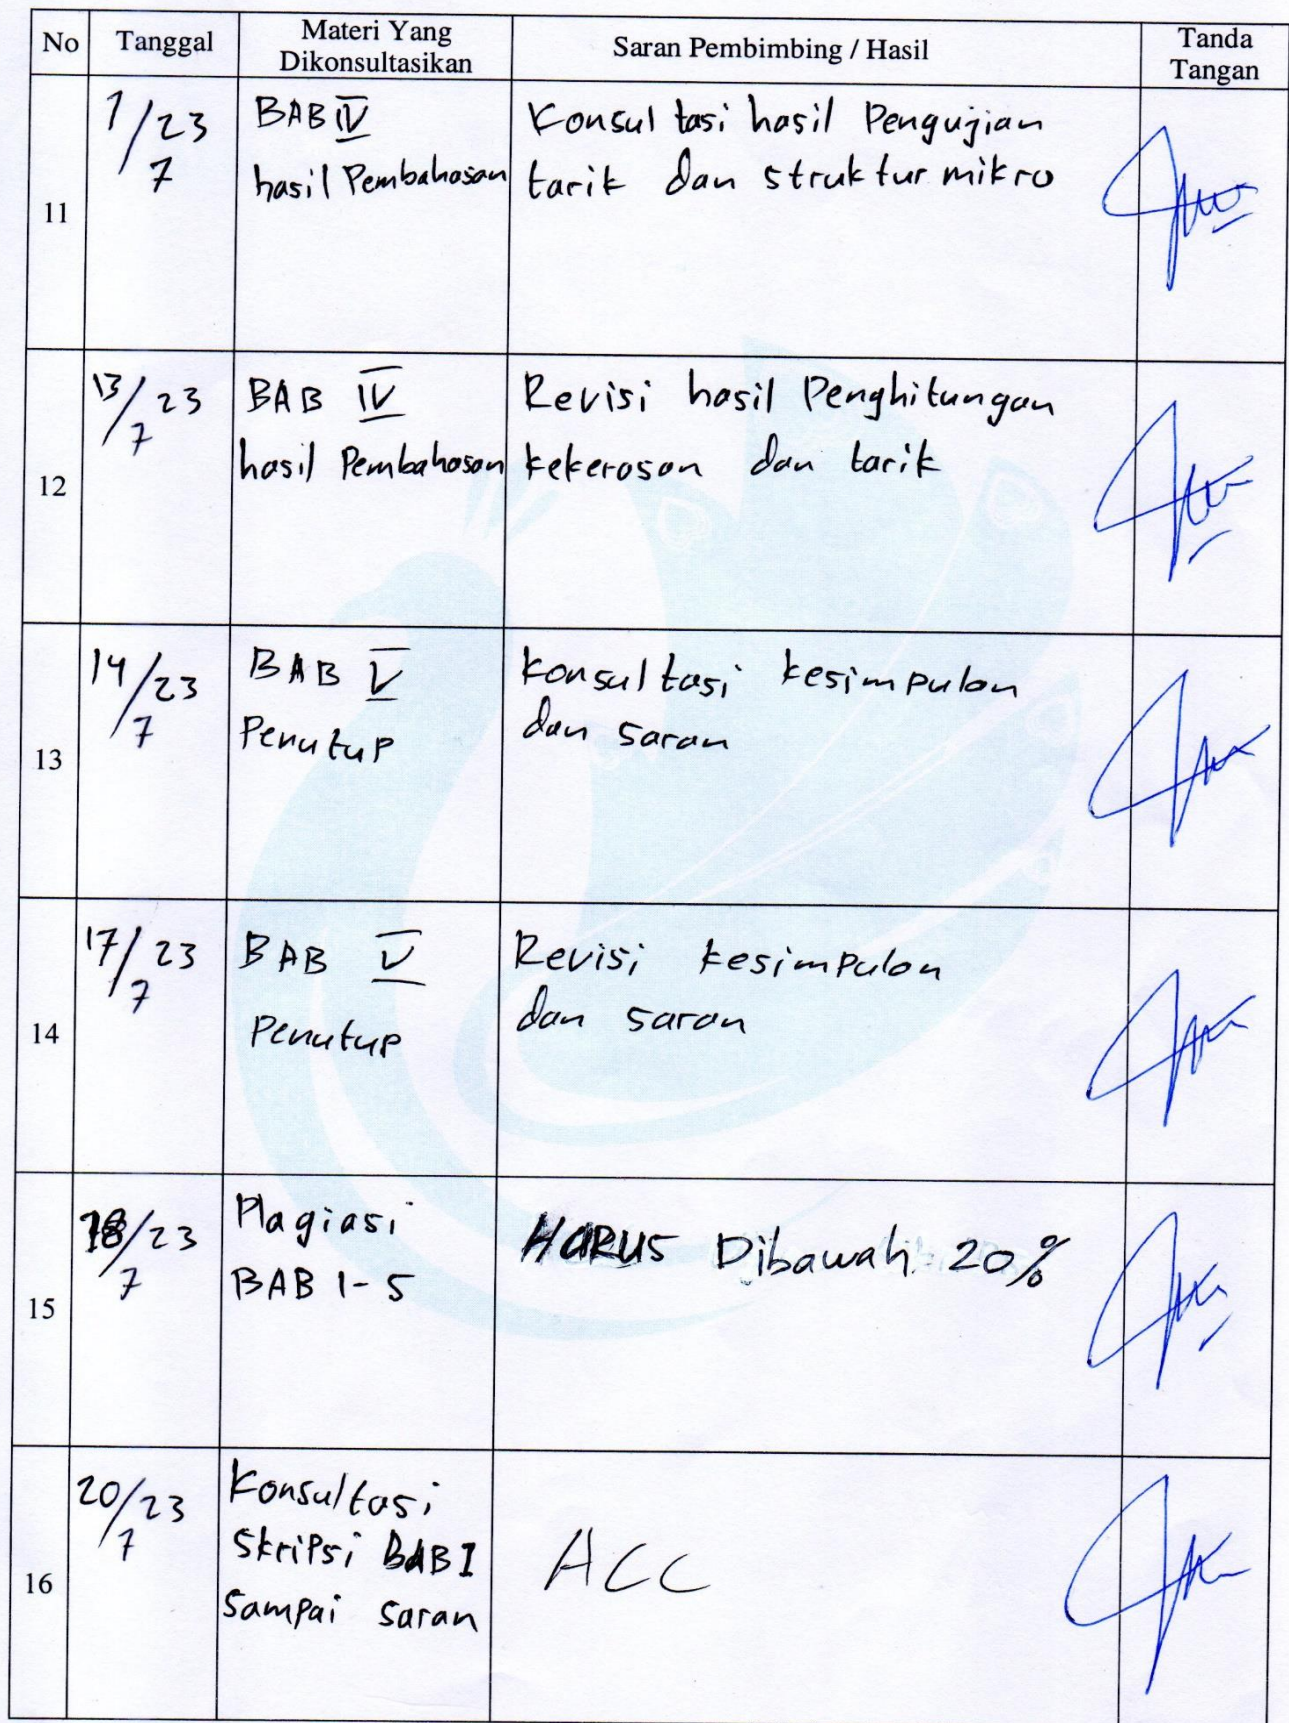 No Tanggal Materi Yang Dikonsultasikan Saran Pembimbing / Hasil Tanda Tangan
11
1/7 23
BAB IV
hasil Pembahasan
Konsultasi hasil Pengujian
tarik dan struktur mikro
12
13/7 23
BAB IV
hasil Pembahasan
Revisi hasil Penghitungan
kekerasan dan tarik
13
14/7 23
BAB V
Penutup
Konsultasi kesimpulan
dan saran
14
17/7 23
BAB V
Penutup
Revisi kesimpulan
dan saran
15
18/7 23
Plagiasi
BAB 1-5
HARUS Dibawah 20%
16
20/7 23
Konsultasi
Skripsi BAB I
sampai saran
ACC